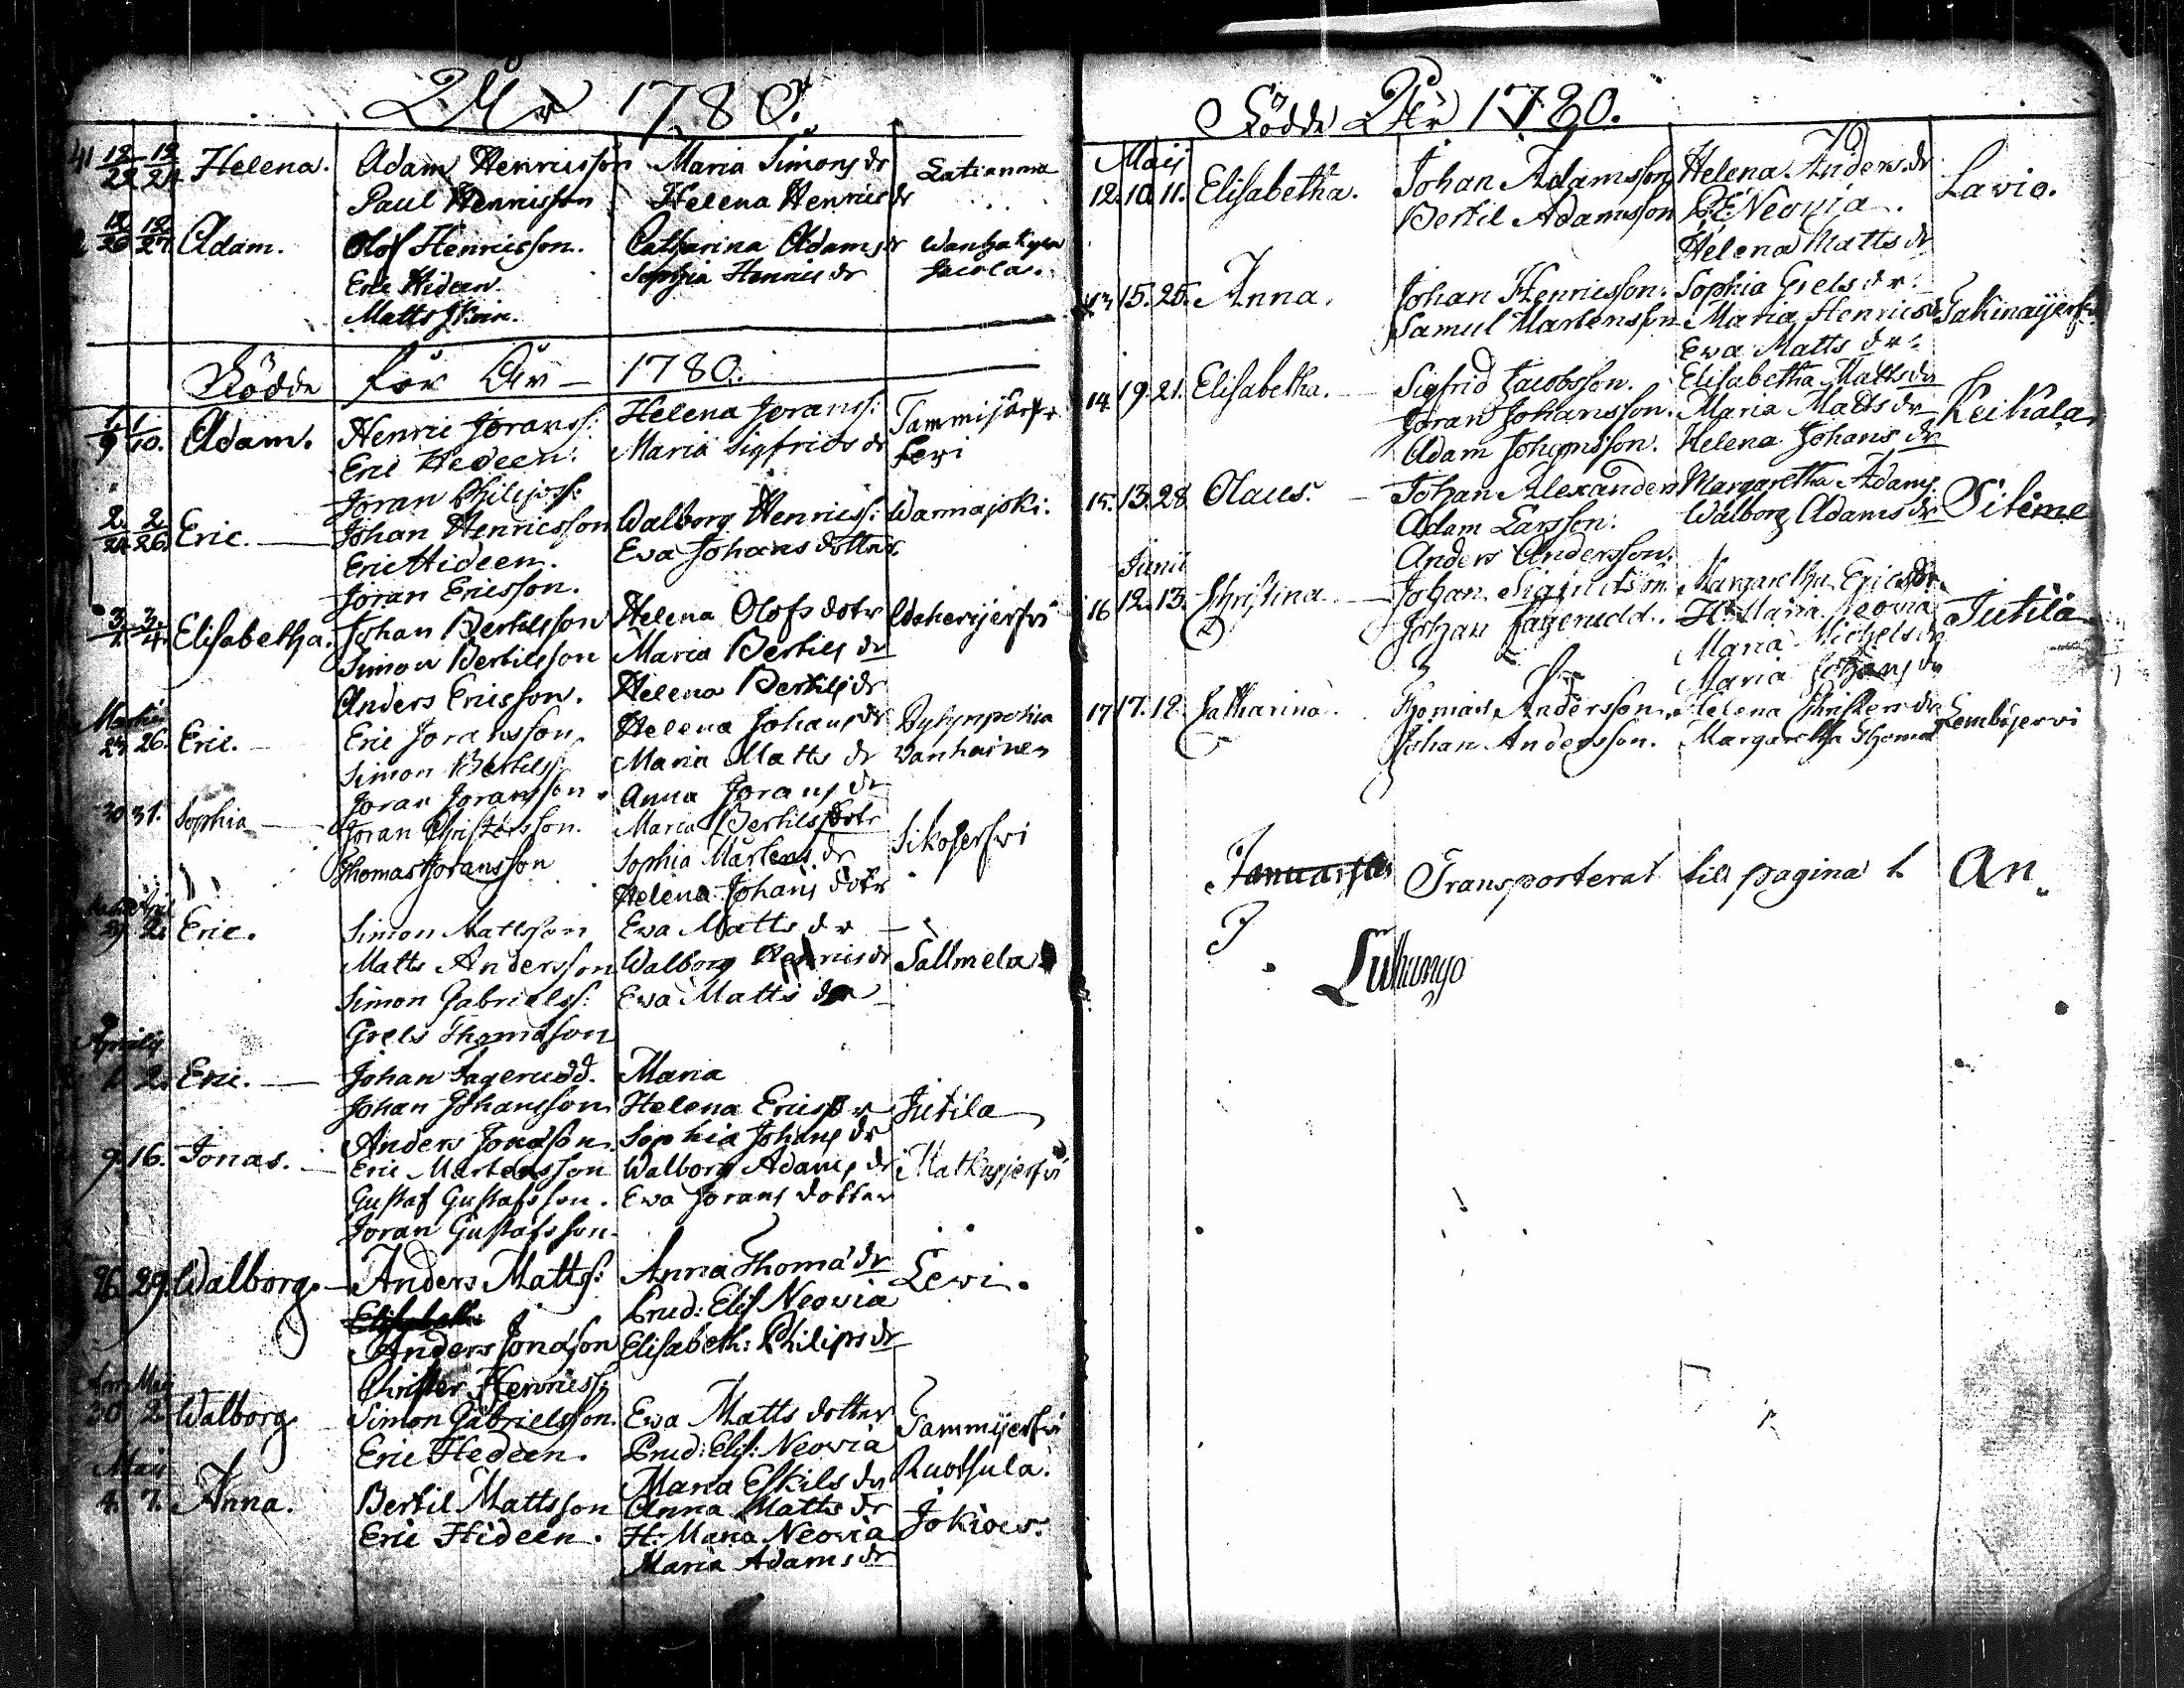 År 1780.
41 12/22 12/24 Helena. Adam Henricsson Maria Simons dr
Paul Henricsson Helena Henrics dr
12/26 12/27 Adam. Olof Henricsson. Catharina Adams dr
Eric Hideen. Sophia Henrics dr
Matts
Födde för År 1780.
1/9 1/10. Adam. Henric Jöranss: Helena Jöranss: Tammijärfvi
Eric Hedeen. Maria Sigfrids dr
Jöran Philipss:
2/24 2/26. Eric. Johan Henricsson Walborg Henricss:
Eric Hideen. Ewa Johans dotter.
Jöran Ericsson.
3/1 3/4. Elisabetha. Johan Bertilsson Helena Olofs dotr
Simon Bertilsson Maria Bertils dr
Anders Ericsson. Helena Bertils dr
Martii
25 26. Eric. Eric Jöransson. Helena Johans dr
Simon Bertilss: Maria Matts dr Vanhainen
Jöran Jöransson. Anna Jörans dr
30 31. Sophia Jöran Christersson. Maria Bertils dotr Sikojerfvi
Thomas Jöransson Sophia Mårtens dr
Helena Johans dotr
2. Eric. Simon Mattsson Ewa Matts dr
Matts Andersson Walborg Henrics dr Sallmela
Simon Gabrielss: Ewa Matts dr
Grels Thomasson
Aprilis
1. 2. Eric. Johan Fagerudd. Maria
Johan Johansson Helena Erics dr Jutila
Anders Jonasson. Sophia Johans dr
9. 16. Jonas. Eric Mårtensson Walborg Adams dr Matkusjerfvi
Gustaf Gustafsson. Ewa Jörans dotter
Jöran Gustafsson.
26. 29. Walborg. Anders Mattss: Anna Thomæ dr Lewi.
Prud: Elis Neovia
Anders Jonasson Elisabeth: Philips dr
Christer Henricss:
Maij
30 2. Walborg Simon Gabrielsson. Ewa Matts dotter Tammijerfvi
Eric Hedeen. Prud: Elis: Neovia
Maria Eskils dr Ruotsula.
Maij
4. 7. Anna. Bertil Mattsson Anna Matts dr Jokiois.
Eric Hideen. H: Maria Neovia
Maria Adams dr
Födde År 1780.
Maij
12. 10. 11. Elisabetha. Johan Adamsson Helena Anders dr Lavio.
Bertil Adamsson Neovia.
Helena Matts dr
13 15. 25. Anna. Johan Henricsson. Sophia Grels dr.
Samuel Mårtensson Maria Henrics dr
Ewa Matts dr.
14 19. 21. Elisabetha. Sigfrid Jacobsson. Elisabetha Matts dr
Jöran Johansson. Maria Matts dr Keikala
Adam Johansson. Helena Johans dr
15. 13. 28. Olaus. Johan Alexanders Margaretha Adams
Adam Larsson. Walborg Adams dr
Anders Andersson.
Junii
16 12. 13. Christina Johan Margaretha Erics dr
Johan Fagerudd. H: Maria Neovia Jutila
Maria Michels dr
Maria Johans dr
17 17. 18. Catharina. Thomas Andersson. Helena Christers dr
Johan Andersson. Margaretha Thomæ
Januarius Transporterat till pagina 1. An.
J
Luhango